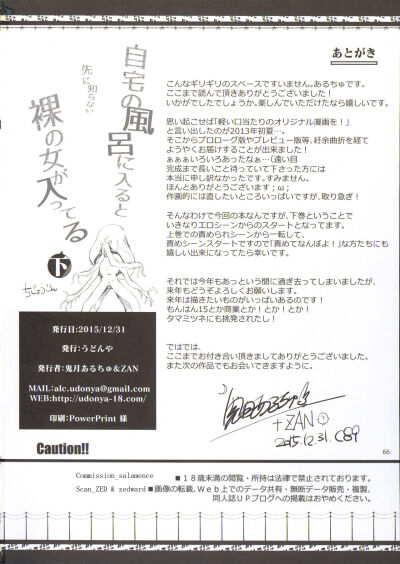 あとがき
こんなギリギリのスペースですいません。あるちゅです。
ここまで読んで頂きありがとうございました！
いかがでしたでしょうか。楽しんでいただけたなら嬉しいです。
思い起こせば「軽い口当たりのオリジナル漫画を！」
と言い出したのが2013年初夏…。
そこからプロローグ版やプレビュー版等、紆余曲折を経て
ようやくお届けすることが出来ました！
ぁぁぁいろいろあったなぁ…（遠い目
完成まで長いこと待っていて下さった方には
本当に申し訳なかったです。すみません。
ほんとありがとうございます；ω；
作画的には直したいところいっぱいですが、取り急ぎ！
そんなわけで今回の本なんですが、下巻ということで
いきなりエロシーンからのスタートとなってます。
上巻での責められシーンから一転して、
責めシーンスタートですので「責めてなんぼよ！」な方たちにも
嬉しい出来になってたら幸いです。
それでは今年もあっという間に過ぎ去ってしまいましたが、
来年もどうぞよろしくお願いします。
来年は描きたいものがいっぱいあるのです！
もんはん15とか商業とか！とか！とか！
タマミツネにも挑発されたし！
ではでは、
ここまでお付き合い頂きましてありがとうございました。
また次の作品でもお会いできますように。
+ZAN
2015.12.31. C89
自宅の風呂に入ると
先に知らない
裸の女が入ってる
下
発行日:2015/12/31
発行:うどんや
発行者:鬼月あるちゅ&ZAN
MAIL:alc.udonya@gmail.com
WEB:http://udonya-18.com/
印刷:PowerPrint 様
66
Caution!!
Commission_salamence
Scan_ZED & zedward
■１８歳未満の閲覧・所持は法律で禁止されております。
■画像の転載、Ｗｅｂ上でのデータ共有・無断データ販売・複製、
同人誌ＵＰブログへの掲載はおやめください。